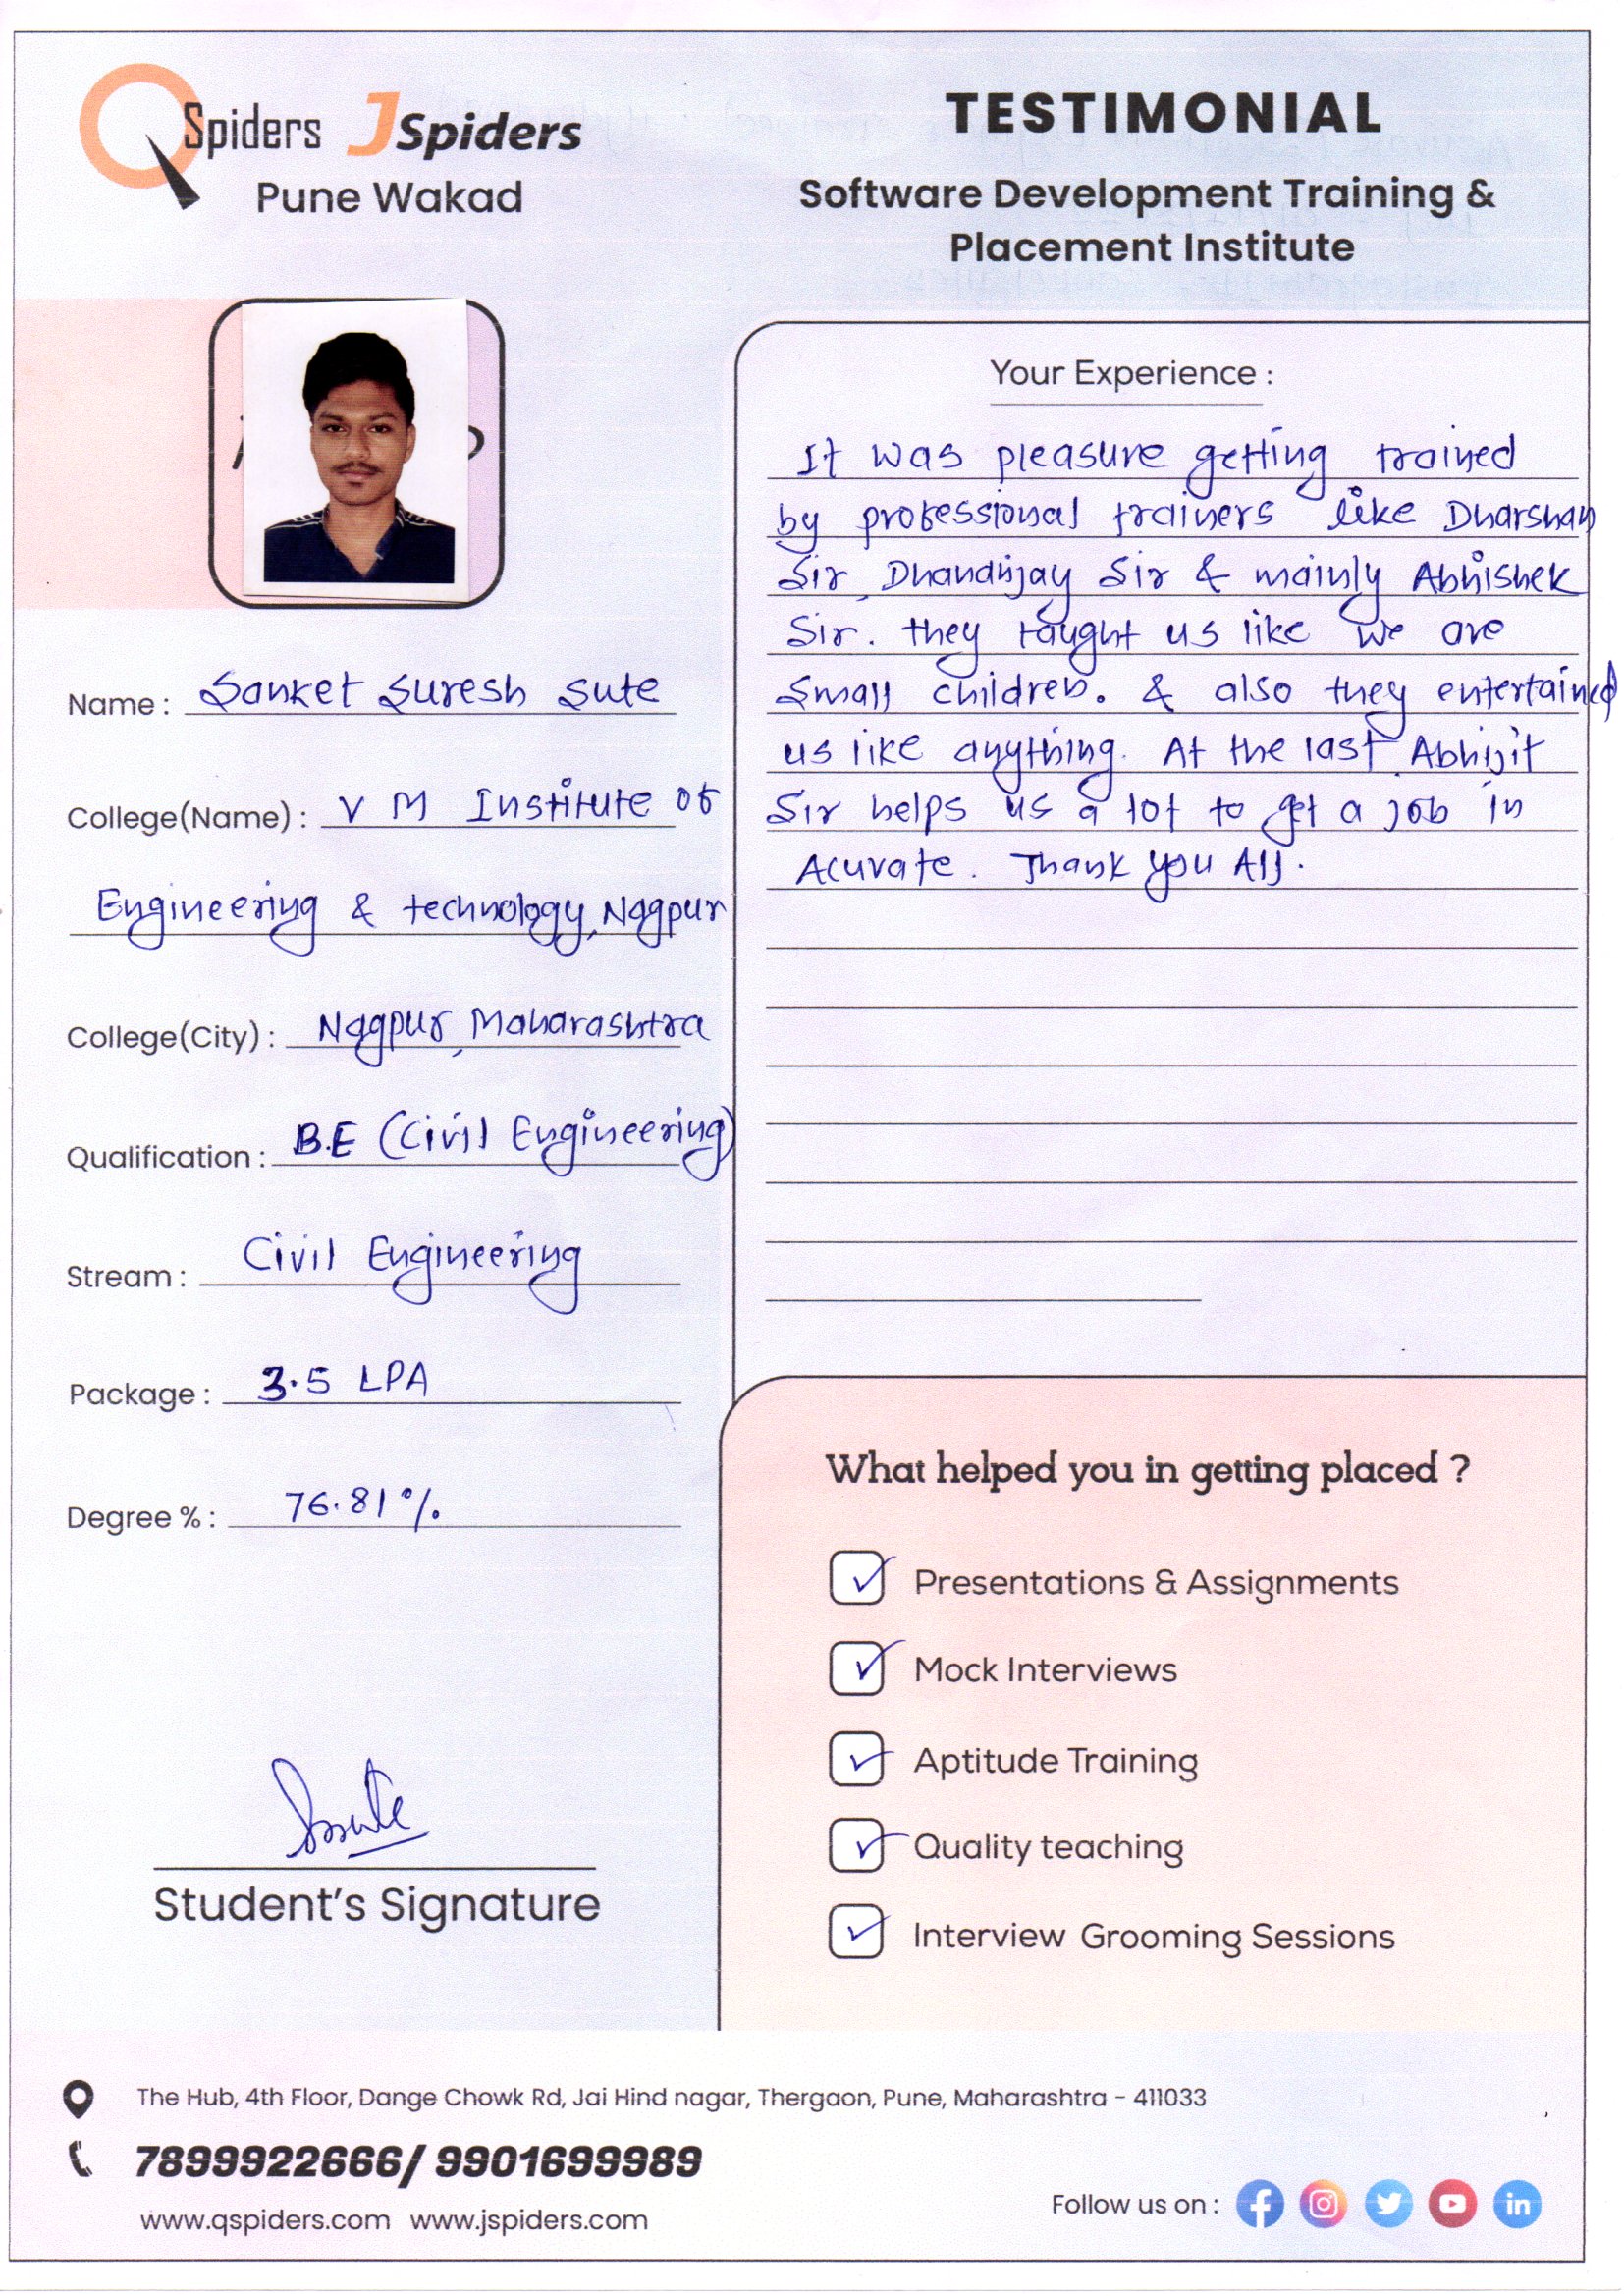 QSpiders JSpiders
Pune Wakad
TESTIMONIAL
Software Development Training &
Placement Institute
Name : Sanket Suresh Sute
College(Name) : V M Institute of
Engineering & technology, Nagpur
College(City) : Nagpur, Maharashtra
Qualification : B.E (Civil Engineering)
Stream : Civil Engineering
Package : 3.5 LPA
Degree % : 76.81%
Student's Signature
Your Experience :
It was pleasure getting trained
by professional trainers like Dharshan
Sir, Dhananjay Sir & mainly Abhishek
Sir. they taught us like we are
small children. & also they entertained
us like anything. At the last, Abhijit
Sir helps us a lot to get a job in
Acuvate. Thank you All.
What helped you in getting placed ?
Presentations & Assignments
Mock Interviews
Aptitude Training
Quality teaching
Interview Grooming Sessions
The Hub, 4th Floor, Dange Chowk Rd, Jai Hind nagar, Thergaon, Pune, Maharashtra - 411033
7899922666/ 9901699989
www.qspiders.com www.jspiders.com
Follow us on :